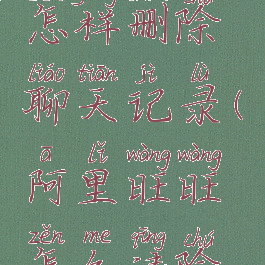 怎样删除
liáo tiān jì lù
聊天记录(
ā lǐ wàng wàng
阿里旺旺
zěn me qīng chú